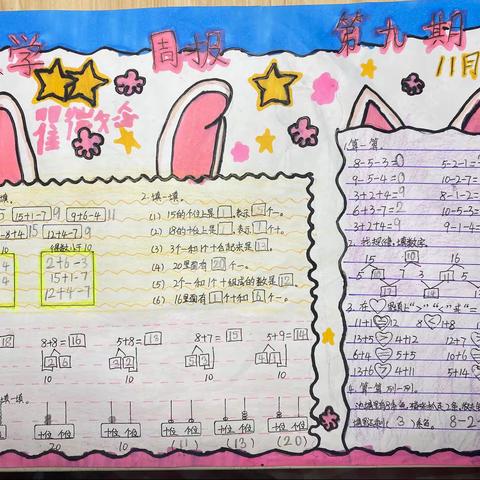 学 周报 第九期
11月
填。
15+1-7 9 9+6-4 11
-8+4 15 12+4-7 9
得数小于10
2+6-3
15+1-7
12+4-7
2.填一填。
(1) 15的个位上是 5 ,表示 5 个一。
(4) 20里面有 20 个一。
(5) 2个一和1个十组成的数是 12 。
(6) 16里面有 1 个十和 6 个一。
18 8+8=16 5+8=13 8+7=15 5+9=14
10 10 10 10
填一填。
十位 个位 十位 个位 十位 个位 十位 个位 十位 个位
20 10 (11) (13) (20)
1.算一算。
8-5-3=0 5-2-1=
9-5-4=0 10-2-7=
3+2+4=9 8-1-2=
6+3-7=2 10-5-3=
3+2+4=9 9-1-4=
2.找规律,填数字。
15 10 16
5 10 7 3 11 5
17 14
3.在♡里填上“>”“<”或“=”
11+1=12 8<1+8
13+5>4+12 12+7
6+4=5+5 10+6
13+6>4+11 5+14
4.算一算,列一列。
(3) 8-2